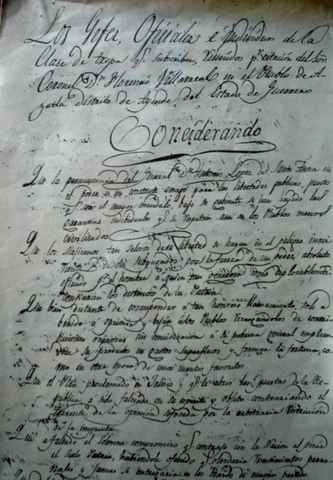 Los Gefes, Oficiales é individuos de la
Clase de tropa q. subscriben, reunidos p. citacion del Sor.
Coronel Dn. Florencio Villarreal en el Pueblo de A-
yutla distrito de Ayutla, del Estado de Guerrero
Considerando
Que la permanencia del General Dn. Antonio Lopez de Santa Anna en
el poder es un constante amago para las libertades publicas, puesto
q. con el mayor escándalo, bajo su gobierno se han hollado las
garantias individuales q. se respetan aun en los Paises menos
civilizados
Que los Mexicanos tan celosos de su libertad se hayan en el peligro inmi-
nente de ser subyugados por la fuerza de un poder absoluto
ejercido p. el hombre á quien tan
confiaron los destinos de la Patria
Que bien distante de corresponder á tan honroso llamamiento, solo
venido á oprimir y vejar los Pueblos recargandolos de contri-
buciones onerosas sin consideracion á la pobreza general emplean-
dose su producto en gastos superfluos y formar la fortuna, co-
mo en otra epoca de unos cuantos favoritos
Que el Plan proclamado en Jalisco y q. le abrió las puertas de la Re-
publica á sido falseado en su espiritu y objeto contrariando el
torrente de la opinion sofocada por la arbitraria restriccion
de la imprenta
Que á faltado al solemne compromiso q. contrajo con la Nacion al pisar
el suelo Patrio, habiendole ofrecido q. olvidaria resentimientos perso-
nales y jamas se entregaria en los brazos de ningun partido